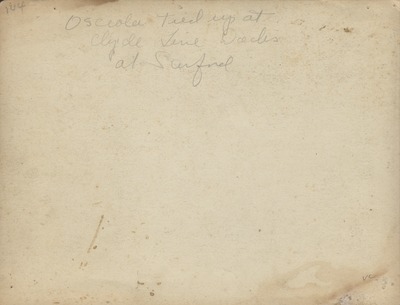 144
Osceola Tied up at
Clyde Line Docks
at Sanford